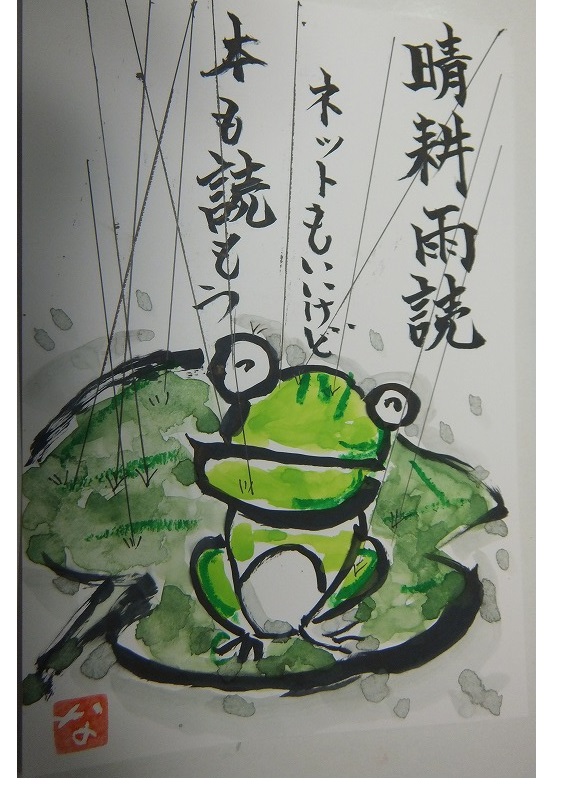 晴耕雨読
ネットもいいけど
本も読もう
な